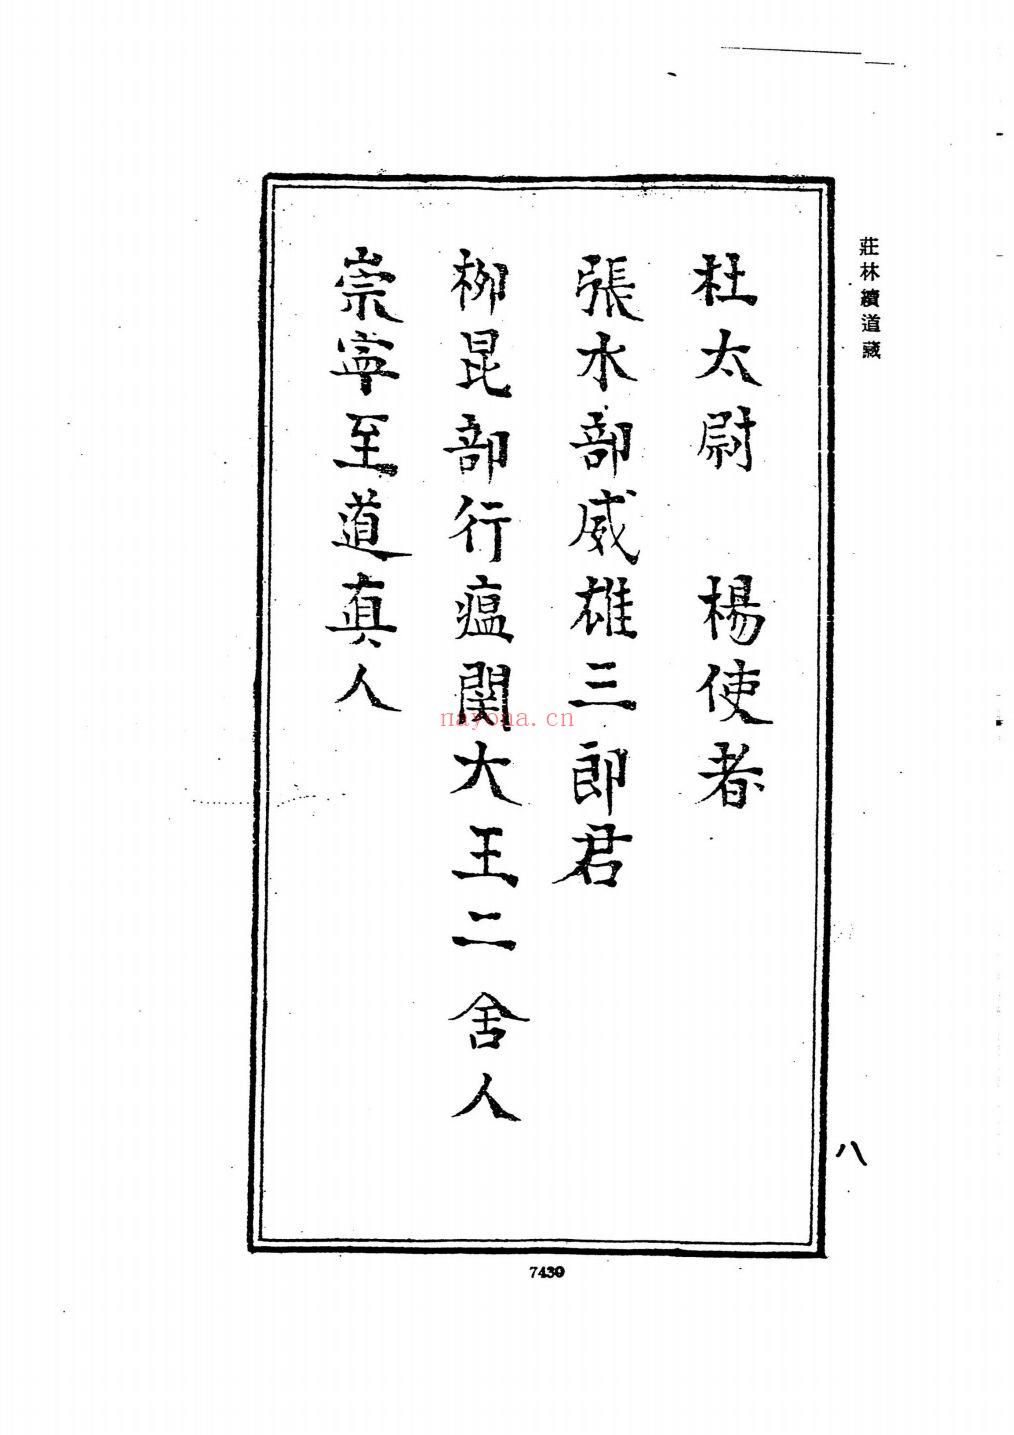 莊林續道藏
杜太尉　楊使者
張水部威雄三郎君
柳昆部行瘟関大王二舍人
崇寧至道真人
八
7430
nayona.cn